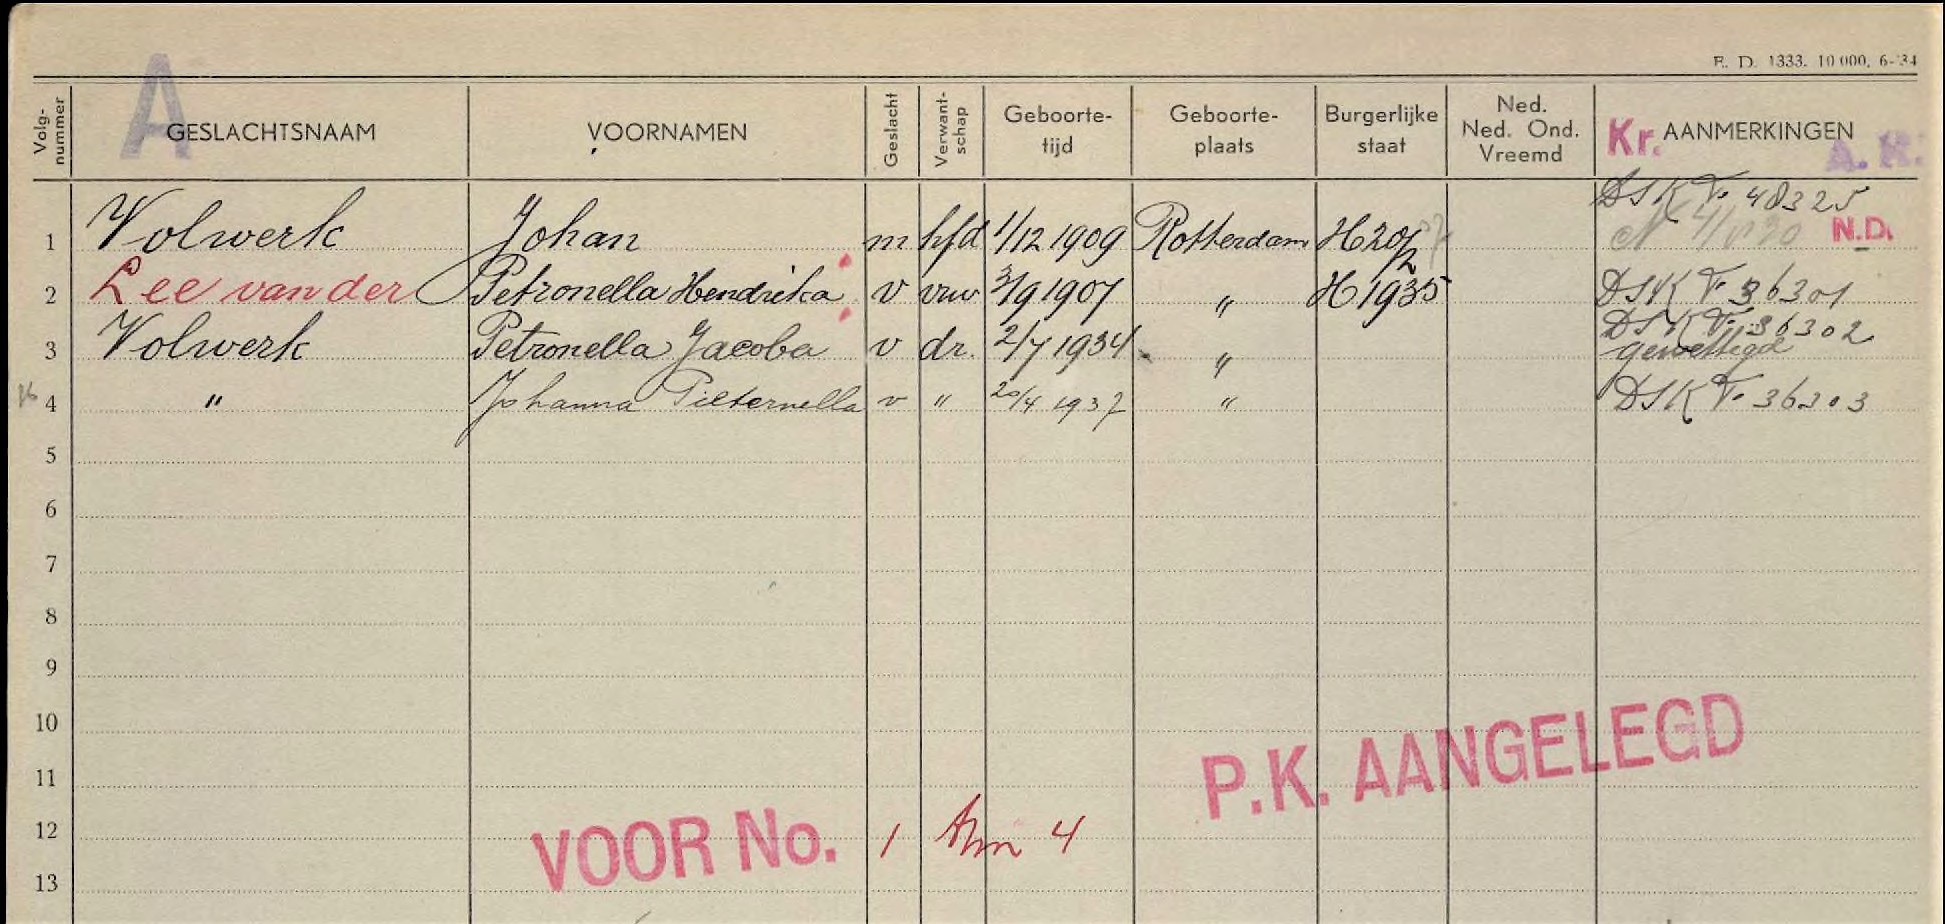 E. D. 1333. 10 000. 6-'34
A
Volg-nummer GESLACHTSNAAM VOORNAMEN Geslacht Verwant-schap Geboorte-tijd Geboorte-plaats Burgerlijke staat Ned. Ned. Ond. Vreemd Kr. AANMERKINGEN A. K.
DSK V. 48325
1 Volwerk Johan m hfd 1/12 1909 Rotterdam H 20/2 N.D.
2 Lee van der Petronella Hendrika v vrw 3/9 1907 " H 1935 DSK V. 36301
DSK V. 36302
3 Volwerk Petronella Jacoba v dr. 2/7 1934 " gewettigd
4 " Johanna Pieternella v " 20/4 1937 " DSK V. 36303
5
6
7
8
9
10
P.K. AANGELEGD
11
12 VOOR No. 1 t/m 4
13